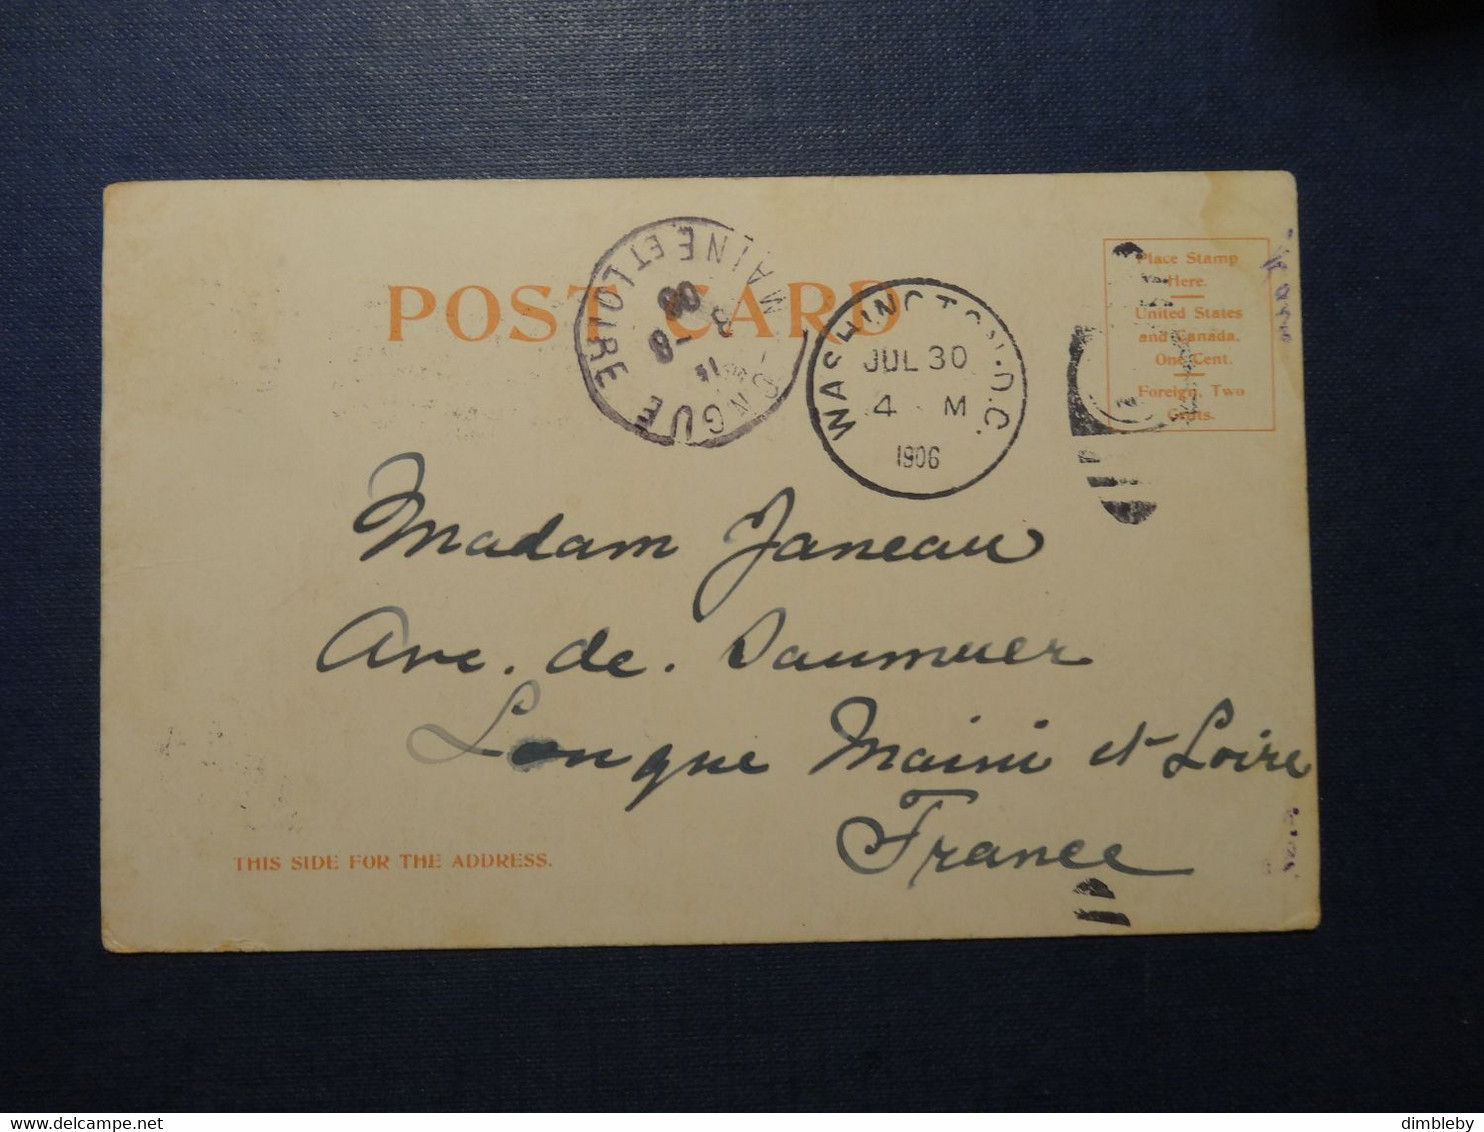 POST CARD
MAINE ET LOIRE
LONGUE
WASHINGTON, D.C.
JUL 30
4 M
1906
Place Stamp
Here.
United States
and Canada,
One Cent.
Foreign, Two
Cents.
Madam Janeau
Ave. de. Saumuer
Longue Maini et Loire
France
THIS SIDE FOR THE ADDRESS.
delcampe.net
dimbleby